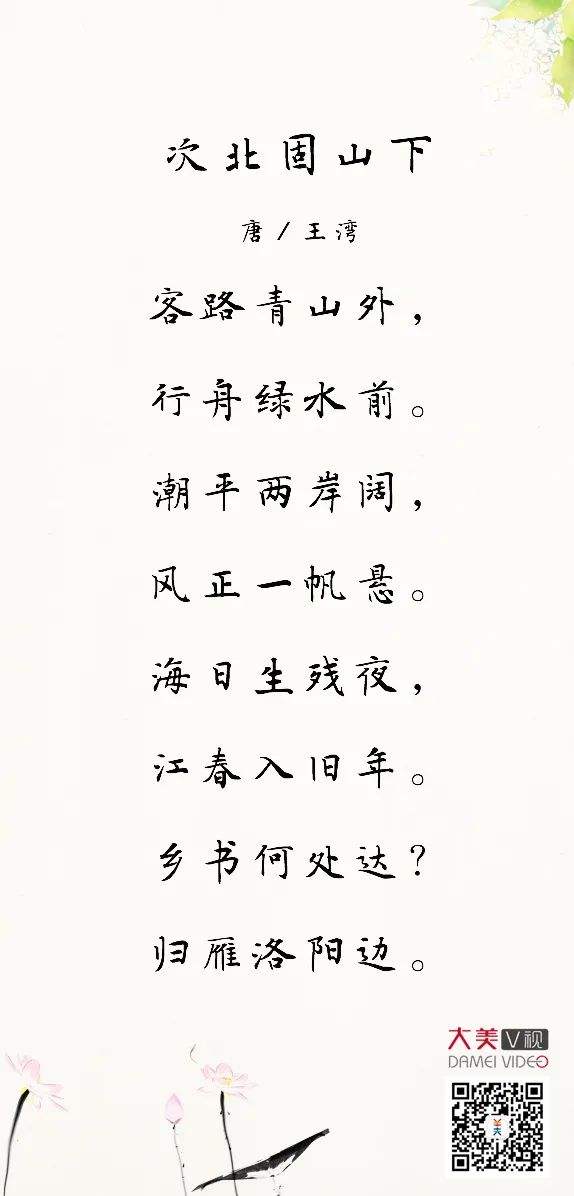 次北固山下
唐/王湾
客路青山外，
行舟绿水前。
潮平两岸阔，
风正一帆悬。
海日生残夜，
江春入旧年。
乡书何处达？
归雁洛阳边。
大美V视
DAMEI VIDEO